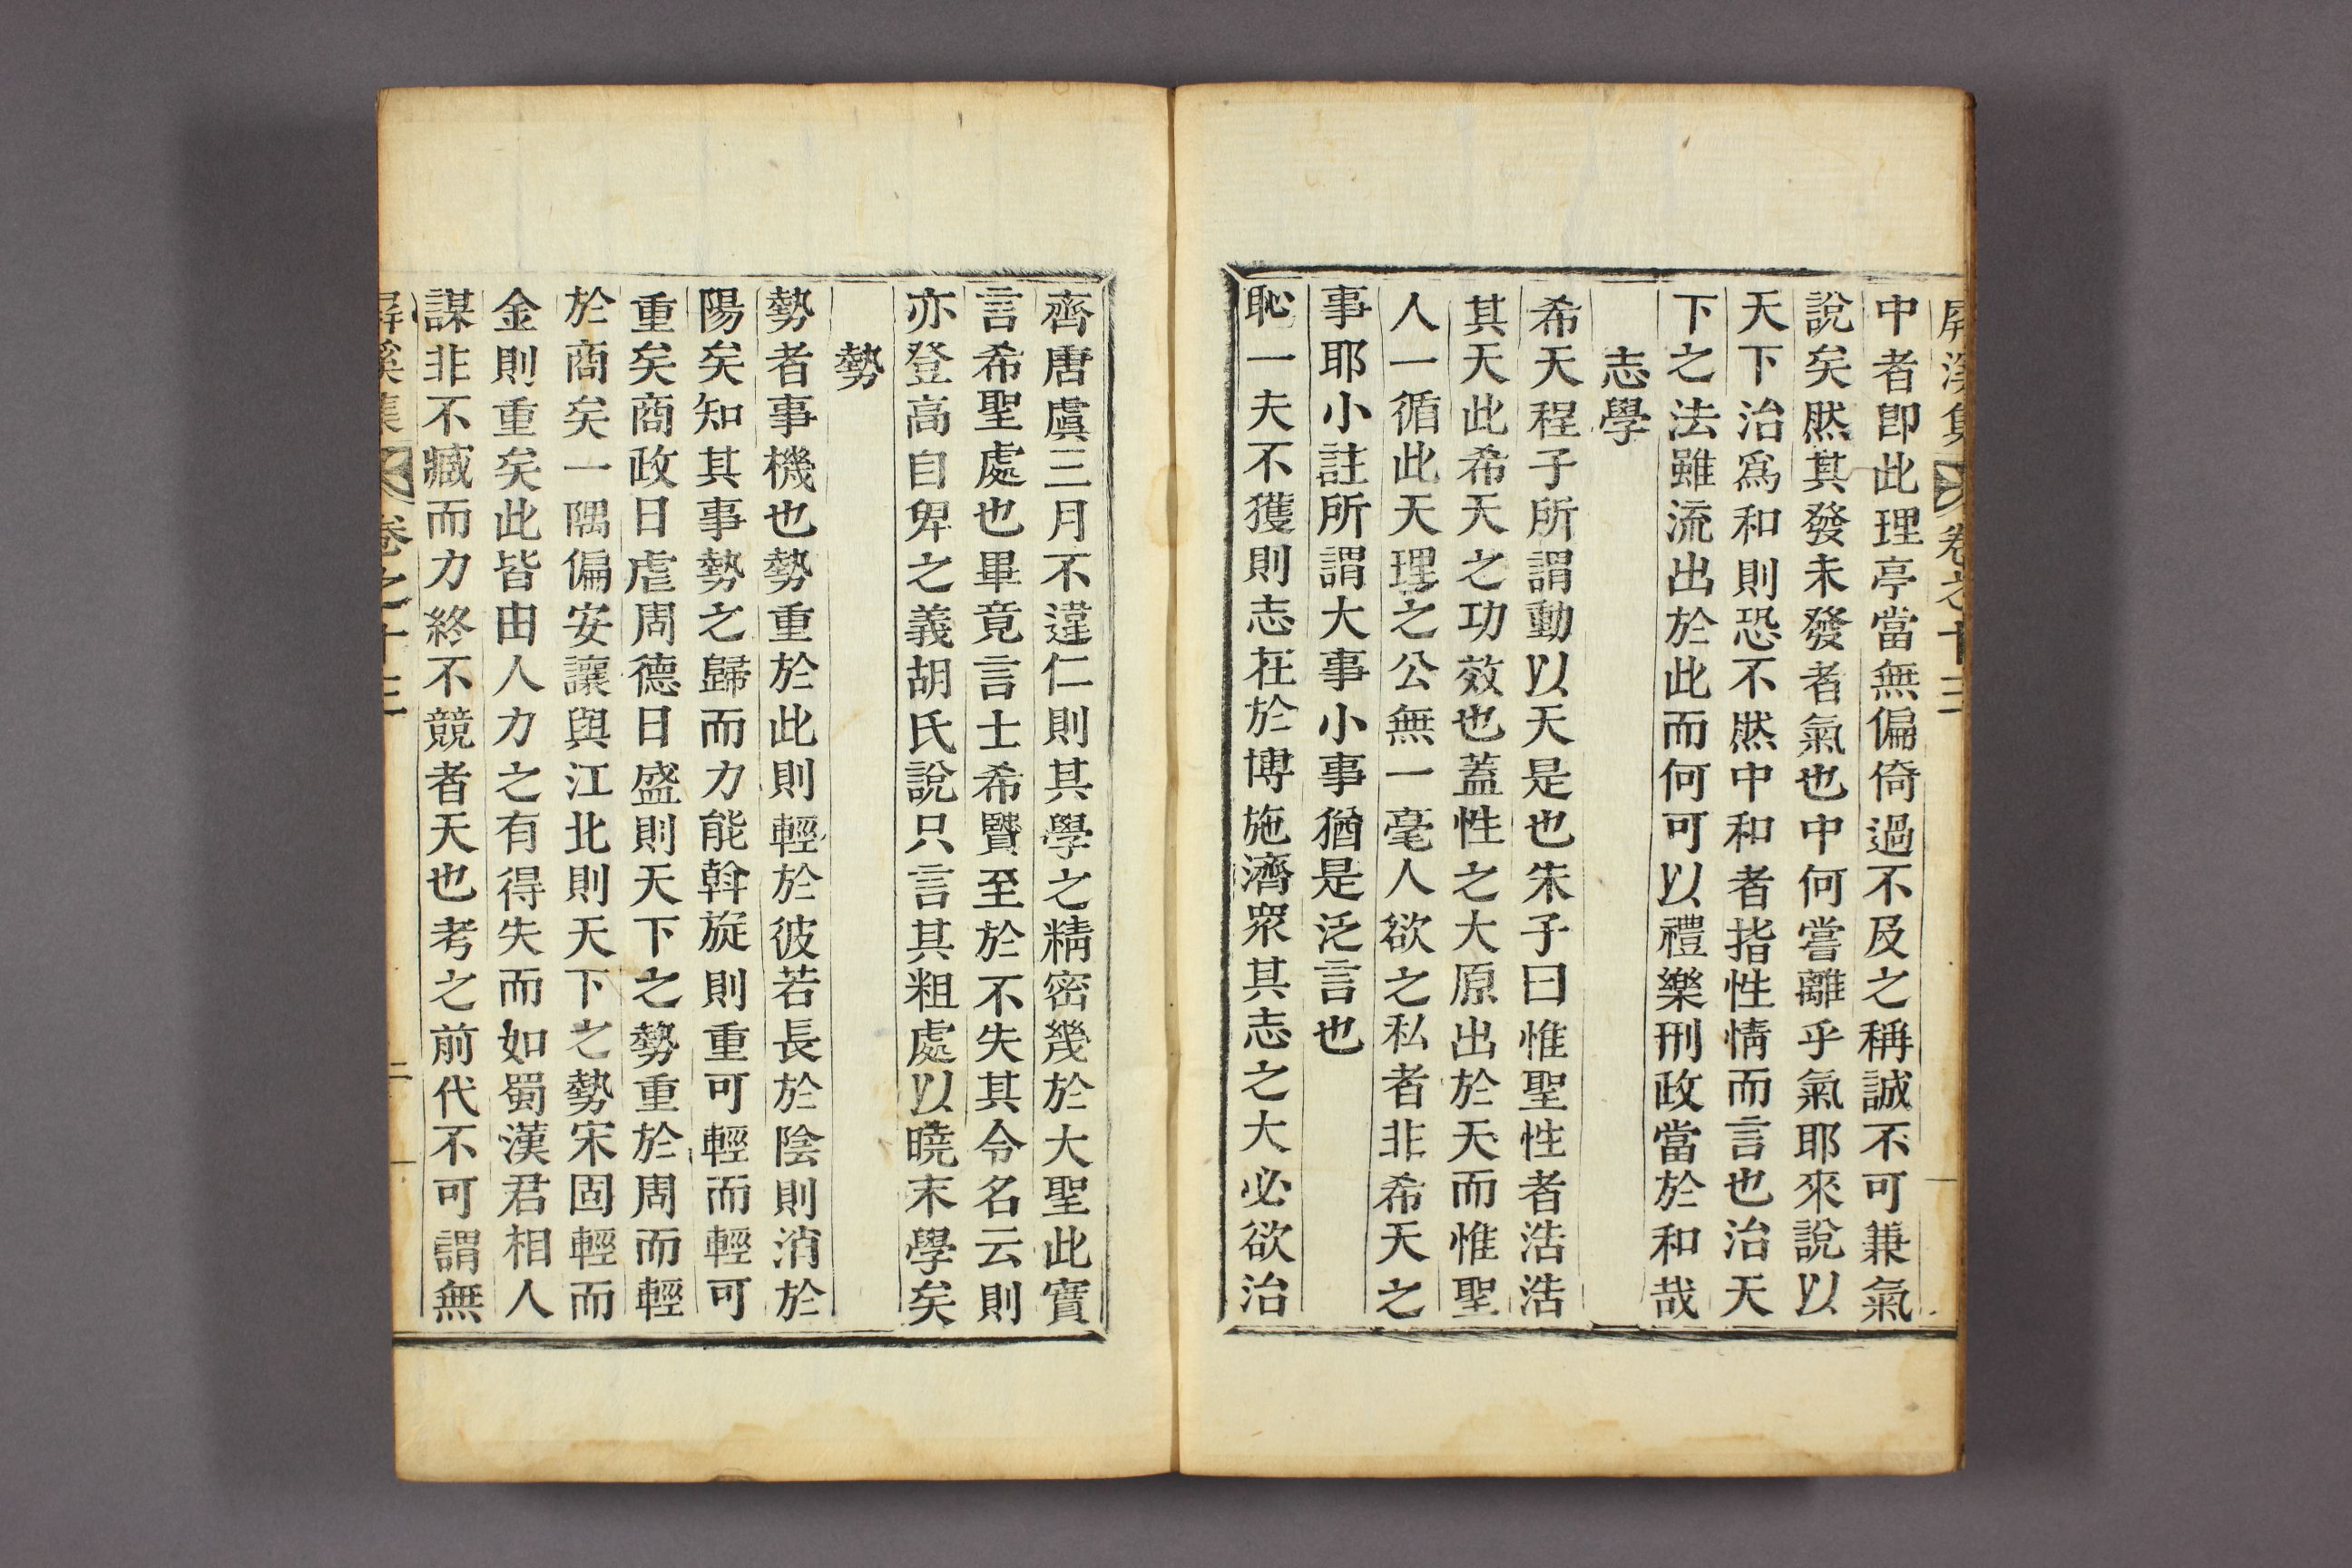 屛溪集 卷之十三
中者卽此理亭當無偏倚過不及之稱誠不可兼氣
說矣然其發未發者氣也中何嘗離乎氣耶來說以
天下治爲和則恐不然中和者指性情而言也治天
下之法雖流出於此而何可以禮樂刑政當於和哉
志學
希天程子所謂動以天是也朱子曰惟聖性者浩浩
其天此希天之功效也蓋性之大原出於天而惟聖
人一循此天理之公無一毫人欲之私者非希天之
事耶小註所謂大事小事猶是泛言也
恥一夫不獲則志在於博施濟衆其志之大必欲治
齊唐虞三月不違仁則其學之精密幾於大聖此實
言希聖處也畢竟言士希賢至於不失其令名云則
亦登高自卑之義胡氏說只言其粗處以曉末學矣
勢
勢者事機也勢重於此則輕於彼若長於陰則消於
陽矣知其事勢之歸而力能斡旋則重可輕而輕可
重矣商政日虐周德日盛則天下之勢重於周而輕
於商矣一隅偏安讓與江北則天下之勢宋固輕而
金則重矣此皆由人力之有得失而如蜀漢君相人
謀非不臧而力終不競者天也考之前代不可謂無
屛溪集 卷之十三 二